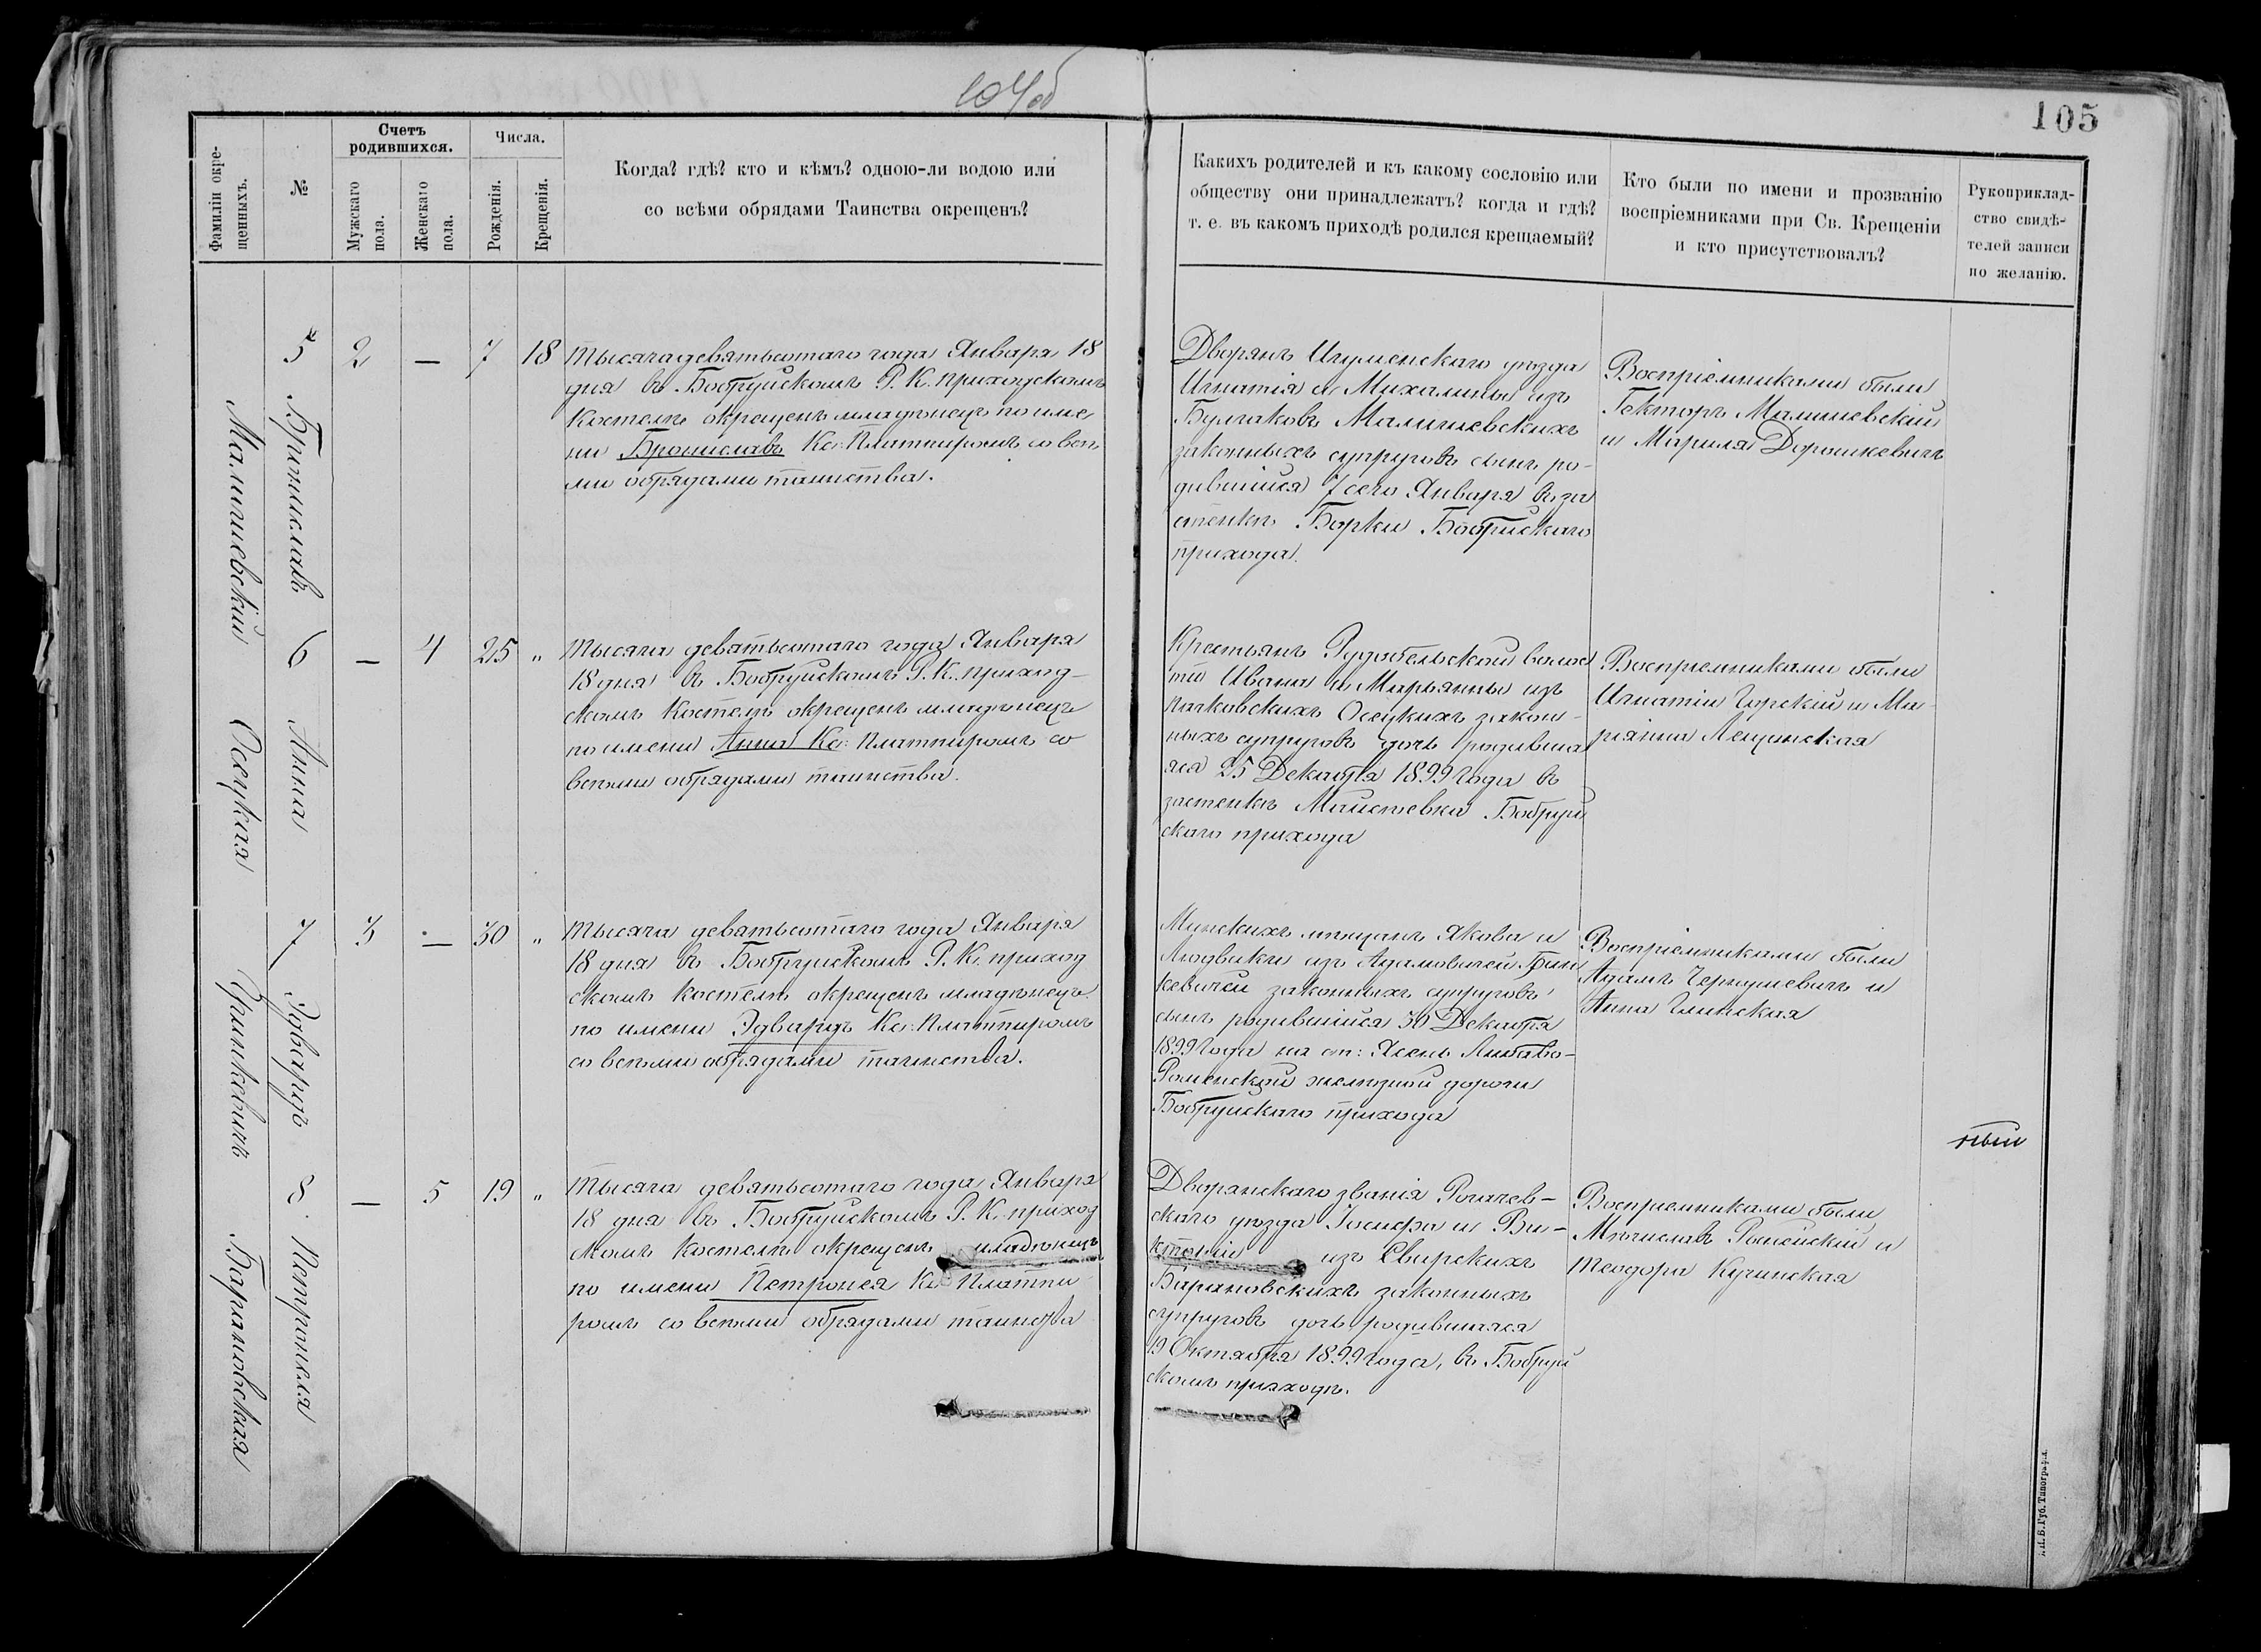 104об
105
Фамиліи окре-
щенныхъ.
№
Счетъ
родившихся.
Мужскаго
пола.
Женскаго
пола.
Числа.
Рожденія.
Крещенія.
Когда? гдѣ? кто и кѣмъ? одною-ли водою или
со всѣми обрядами Таинства окрещенъ?
Какихъ родителей и къ какому сословію или
обществу они принадлежатъ? когда и гдѣ?
т. е. въ какомъ приходѣ родился крещаемый?
Кто были по имени и прозванію
воспріемниками при Св. Крещеніи
и кто присутствовалъ?
Рукоприклад-
ство свидѣ-
телей записи
по желанію.
Малишевскій
5 Брониславъ
2 — 7 18
Тысяча девятьсотаго года Января 18
дня въ Бобруйскомъ Р. К. приходскомъ
костелѣ окрещенъ младѣнецъ по име
ни Брониславъ Кс: Платпиромъ со всѣ
ми обрядами таинства.
Дворянъ Игуменскаго уѣзда
Игнатія и Михалины изъ
Булгаковъ Малишевскихъ
законныхъ супруговъ сынъ ро-
дившійся 7 сего Января въ за
стенкѣ Борки Бобруйскаго
прихода.
Воспріемниками были
Гекторъ Малишевскій
и Мариля Дорошкевичъ
Осецкая
6 Анна
— 4 25 „
Тысяча девятьсотаго года Января
18 дня въ Бобруйскомъ Р. К. приход-
скомъ костелѣ окрещенъ младѣнецъ
по имени Анна Кс: Платпиромъ со
всѣми обрядами таинства.
Крестьянъ Рудобельской волос
ти Ивана и Марьянны изъ
Осецкихъ закон-
ныхъ супруговъ дочь родивша
яся 25 Декабря 1899 года въ
застенкѣ Бобруй
скаго прихода
Воспріемниками были
Игнатій Горскій и Ма-
ріянна Лещинская
Гринкевичъ
7 Эдвардъ
3 — 30 „
Тысяча девятьсотаго года Января
18 дня въ Бобруйскомъ Р. К. приход
скомъ костелѣ окрещенъ младѣнецъ
по имени Эдвардъ Кс: Платпиромъ
со всѣми обрядами таинства.
Минскихъ мѣщанъ Якова и
Людвики изъ Адамовичей Грин
кевичей законныхъ супруговъ
сынъ родившійся 30 Декабря
1899 года на ст: Ясень Либаво-
Роменской желѣзной дороги
Бобруйскаго прихода
Воспріемниками были
Адамъ Чернушевичъ и
Анна Глинская
Барановская
8 Петронеля
— 5 19 „
Тысяча девятьсотаго года Января
18 дня въ Бобруйскомъ Р. К. приход
скомъ костелѣ окрещенъ младѣнецъ
по имени Петронеля Кс Платпи
ромъ со всѣми обрядами таинства
Дворянскаго званія Рогачев-
скаго уѣзда Іосифа и Ви-
кторіи изъ Свирскихъ
Барановскихъ законныхъ
супруговъ дочь родившаяся
19 Октября 1899 года, въ Бобруй
скомъ приходѣ.
Воспріемниками были
Мечиславъ и
Теодора Кучинская
Губ. Типографія.